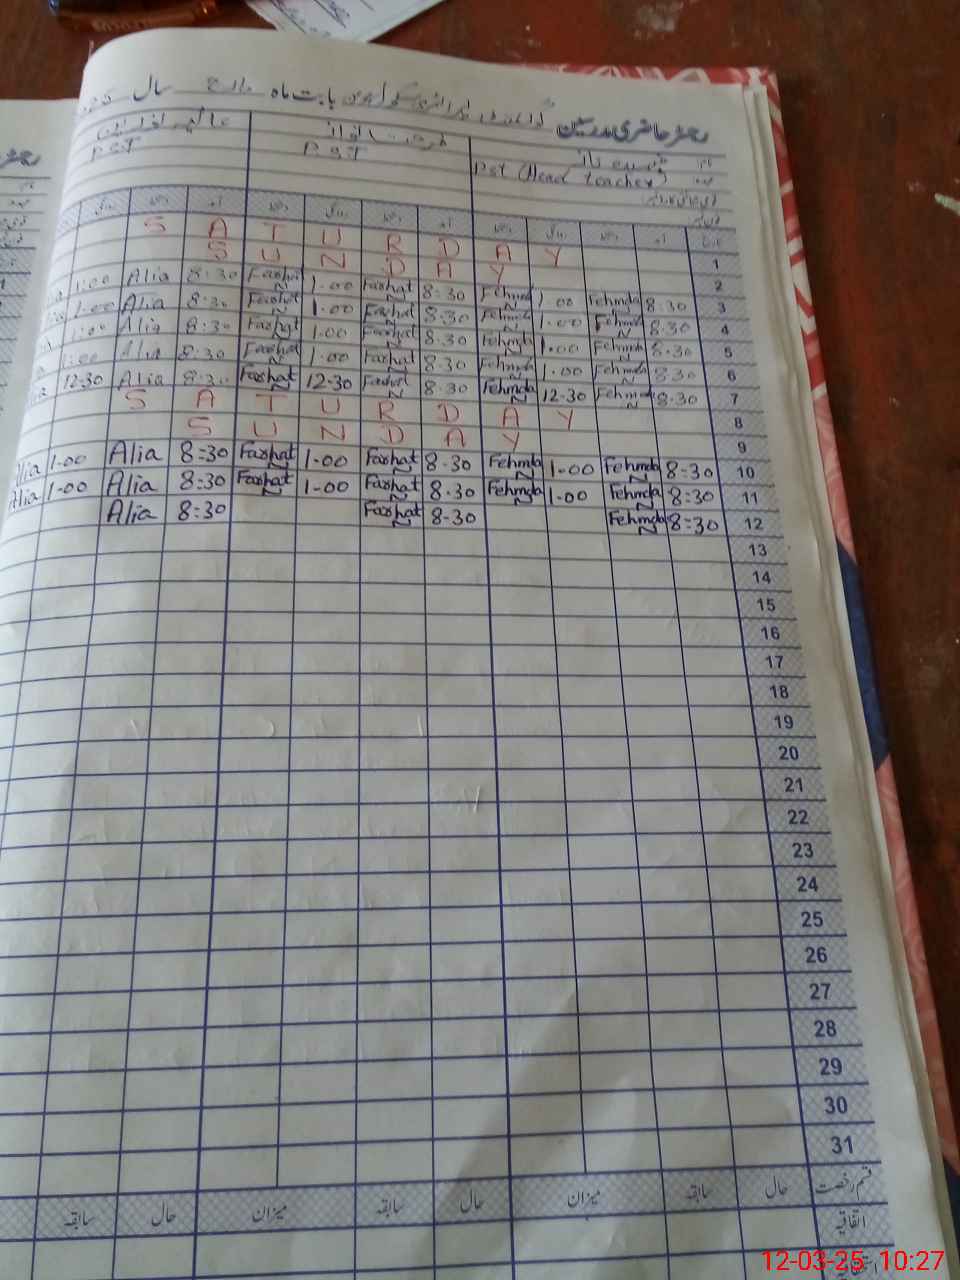 رجسٹر حاضری مدرسین گورنمنٹ گرلز پرائمری سکول بابت ماہ مارچ سال
فہمیدہ ناز
Pst (Head teacher) P.S.T P.S.T
تاریخ آمد دستخط روانگی دستخط آمد دستخط روانگی دستخط آمد دستخط روانگی
1 SATURDAY
2 SUNDAY
3 8:30 Fehmda 1.00 Fehmda 8:30 Farhat 1.00 Farhat 8:30 Alia 1:00
4 8:30 Fehmda 1.00 Fehmda 8:30 Farhat 1.00 Farhat 8:30 Alia 1:00
5 8:30 Fehmda 1.00 Fehmda 8:30 Farhat 1.00 Farhat 8:30 Alia 1:00
6 8:30 Fehmda 1.00 Fehmda 8:30 Farhat 1.00 Farhat 8:30 Alia 1:00
7 8.30 Fehmda 12.30 Fehmda 8.30 Farhat 12-30 Farhat 8:30 Alia 12-30
8 SATURDAY
9 SUNDAY
10 8:30 Fehmda 1.00 Fehmda 8.30 Farhat 1.00 Farhat 8:30 Alia 1.00 Alia
11 8:30 Fehmda 1.00 Fehmda 8.30 Farhat 1.00 Farhat 8:30 Alia 1.00 Alia
12 8:30 Fehmda 8.30 Farhat 8:30 Alia
13
14
15
16
17
18
19
20
21
22
23
24
25
26
27
28
29
30
31
قسم رخصت حال سابقہ میزان حال سابقہ میزان حال سابقہ
اتفاقیہ
12-03-25 10:27